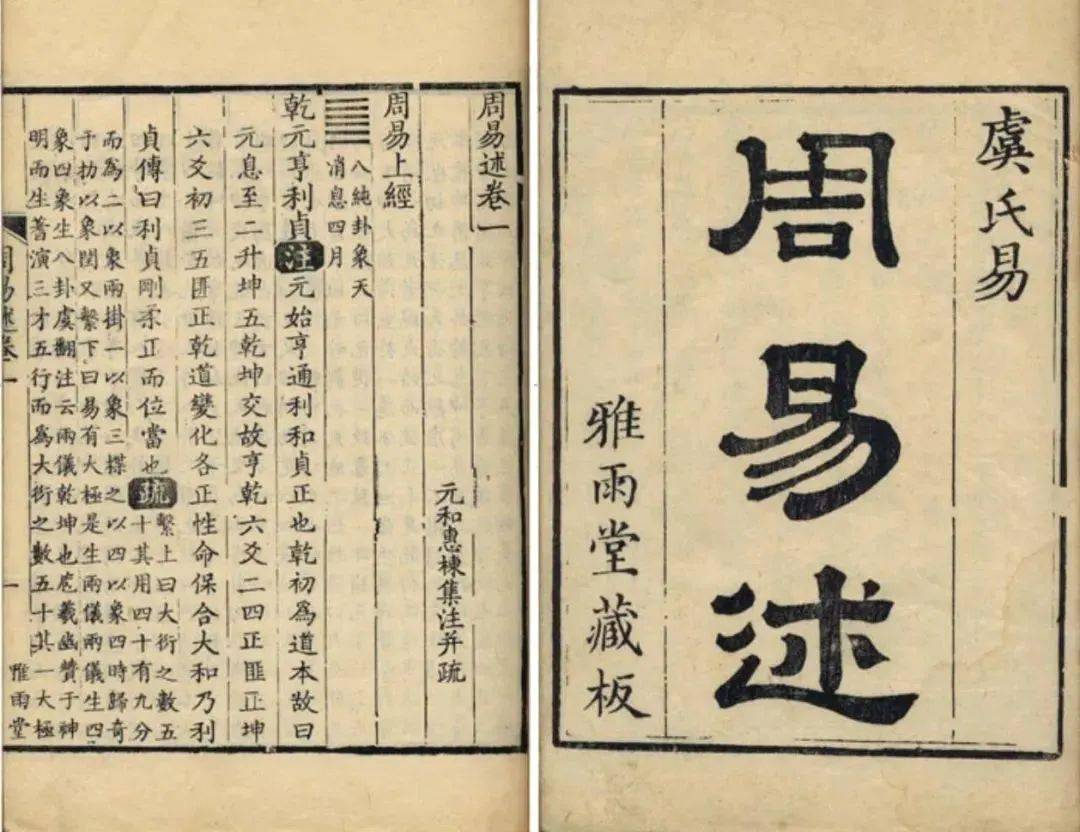 虞氏易
周易述
雅雨堂藏板
周易述卷一
元和惠棟集注并疏
周易上經
䷀八純卦象天
消息四月
乾元亨利貞注元始亨通利和貞正也乾初為道本故曰
元息至二升坤五乾坤交故亨乾六爻二四上匪正坤
六爻初三五匪正乾道變化各正性命保合大和乃利
貞傳曰利貞剛柔正而位當也疏
繫上曰大衍之數五
十其用四十有九分
而為二以象兩掛一以象三揲之以四以象四時歸奇
于扐以象閏又繫下曰易有大極是生兩儀兩儀生四
象四象生八卦虞翻注云兩儀乾坤也庖羲幽贊于神
明而生蓍演三才五行而為大衍之數五十其一大極
周易述卷一
一
雅雨堂